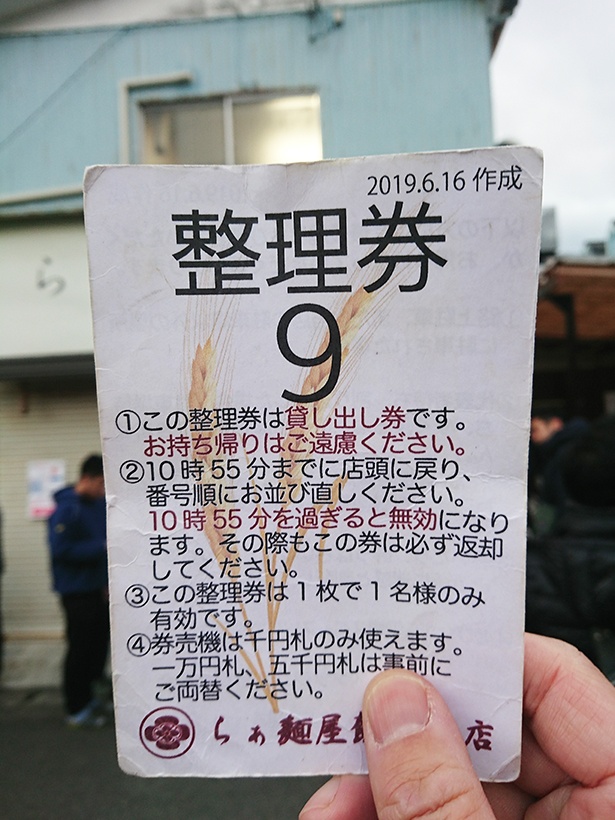 2019.6.16 作成
整理券
9
①この整理券は貸し出し券です。
お持ち帰りはご遠慮ください。
②10時55分までに店頭に戻り、
番号順にお並び直しください。
10時55分を過ぎると無効になり
ます。その際もこの券は必ず返却
してください。
③この整理券は1枚で1名様のみ
有効です。
④券売機は千円札のみ使えます。
一万円札、五千円札は事前に
ご両替ください。
らぁ麺屋 店
ら